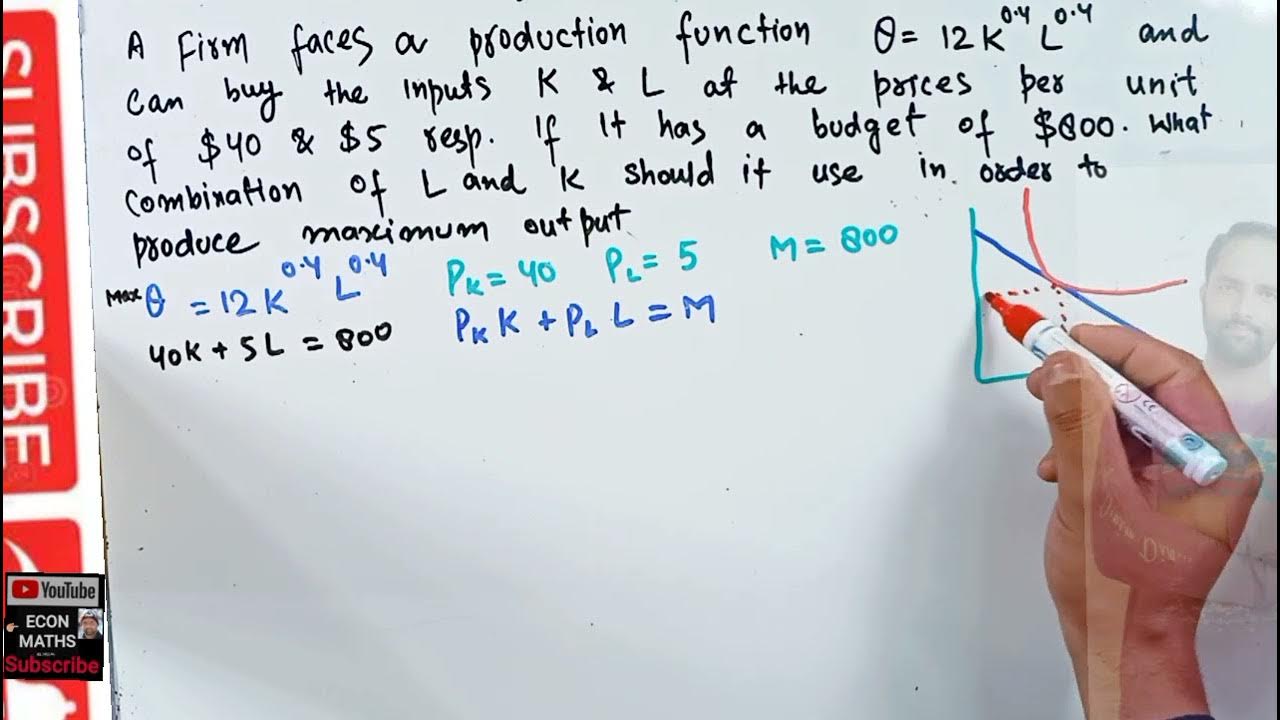 A Firm faces a production function θ = 12 K^0.4 L^0.4 and
can buy the inputs K & L at the prices per unit
of $40 & $5 resp. If it has a budget of $800. What
combination of L and K should it use in order to
produce maximum output
Max θ = 12 K^0.4 L^0.4 P_K = 40 P_L = 5 M = 800
40K + 5L = 800 P_K K + P_L L = M
SUBSCRIBE
YouTube
ECON
MATHS
Subscribe